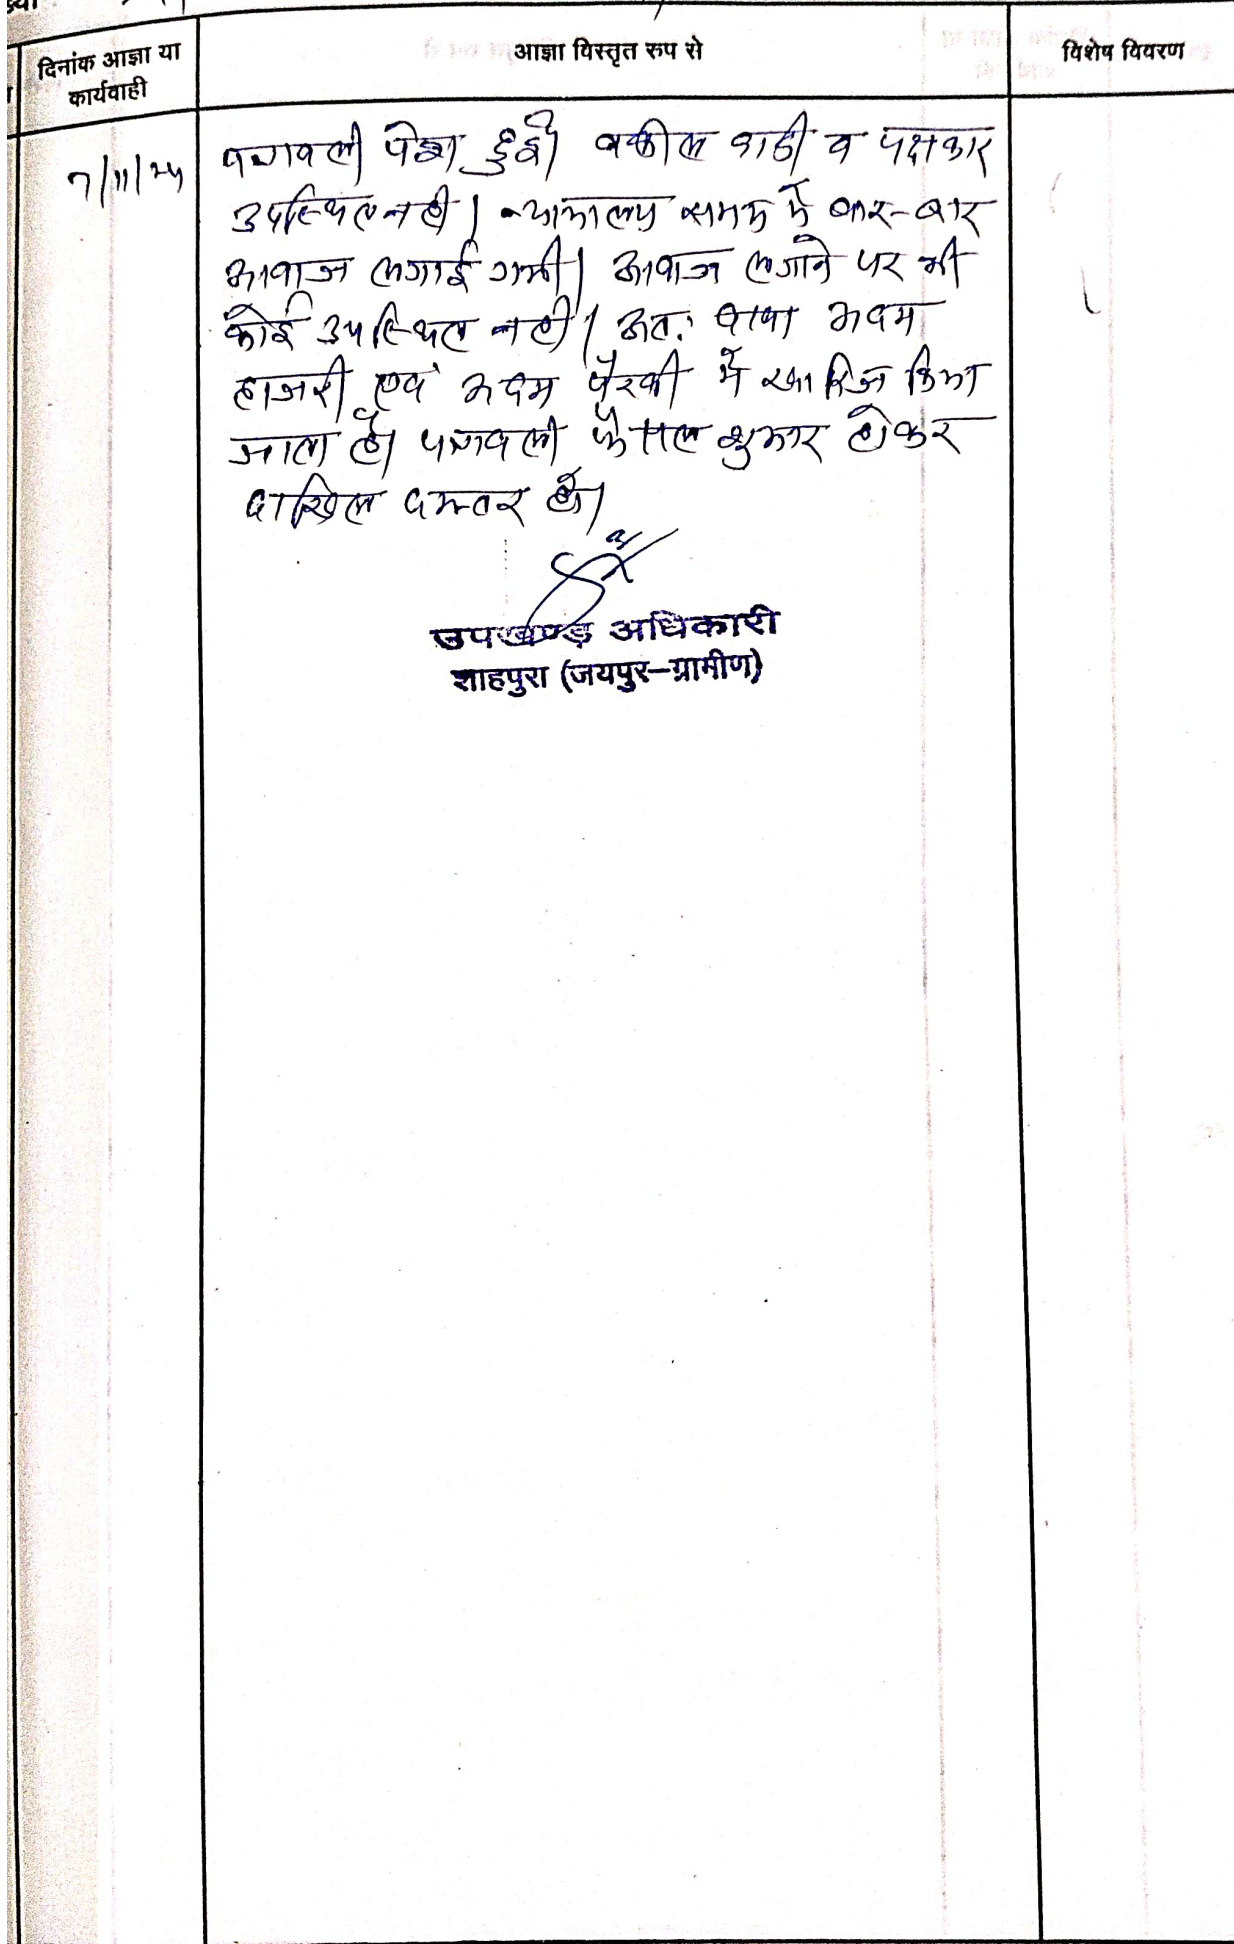 दिनांक आज्ञा या
कार्यवाही
आज्ञा विस्तृत रुप से
विशेष विवरण
7/11/24
पत्रावली पेश हुई। वकील वादी व पक्षकार
उपस्थित नही। न्यायालय समय में बार-बार
आवाज लगाई गयी। आवाज लगाने पर भी
कोई उपस्थित नही। अत: वाद अदम
हाजरी एवं अदम पैरवी में खारिज किया
जाता है। पत्रावली फैसल शुमार होकर
दाखिल दफ्तर हो।
उपखण्ड़ अधिकारी
शाहपुरा (जयपुर-ग्रामीण)